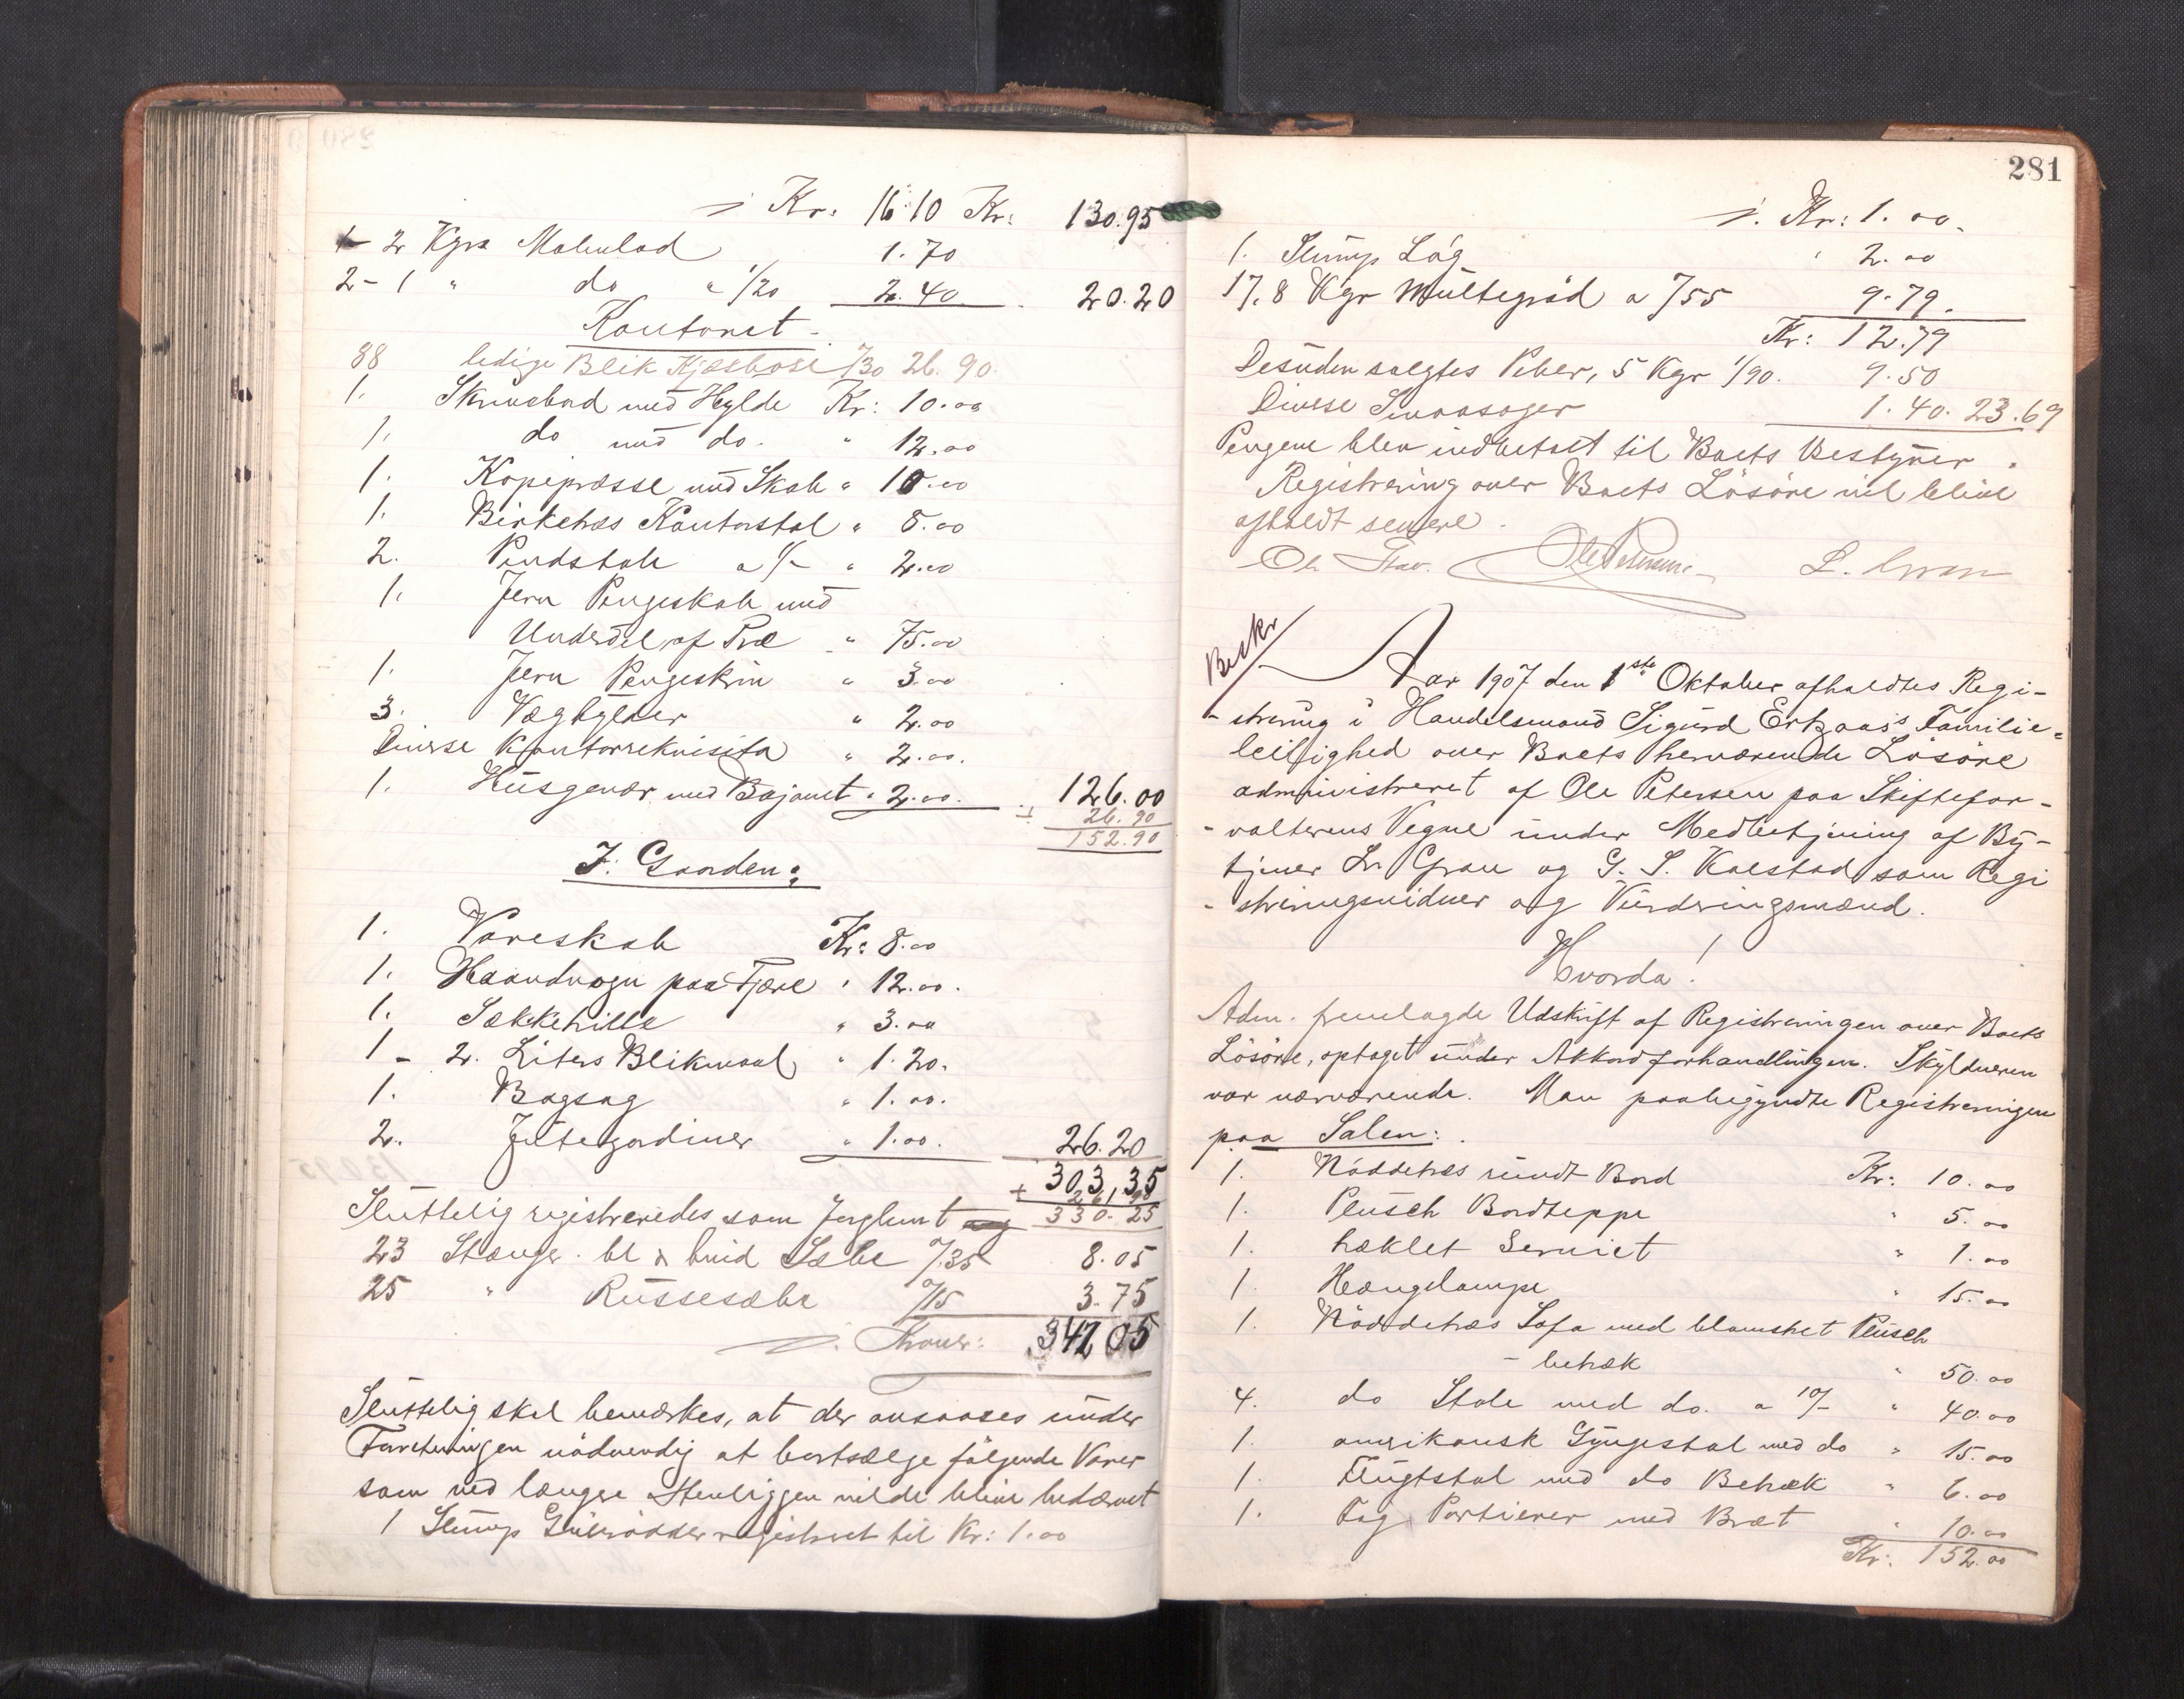 ÷ Kr. 16.10 Kr: 130.95
1 - 2 Kgrs Malulod 1.70
2 - 1 " do a 1/20 2.40 20.20
Kontoret.
88 ledige Blik Kjæsbose /30 26.90
1. Skrivebord med Hylde Kr: 10.00
1. do med do. " 12.00
1. Kopipresse med Skab " 10.00
1. Birketræs Kontorstol " 8.00
2. Pindstole a 1/- " 2.00
1. Jern Pengeskab med
Underdel af Træ " 75.00
1. Jern Pengeskrin " 3.00
3. Væghylder " 2.00
Diverse Kontorrekvisita " 2.00.
1. Husgevær med Bajonet " 2.00. 126.00
+ 26.90
152.90
I. Gaarden:
1. Vareskab Kr: 8.00
1. Haandvogn paa Fjære " 12.00.
1. Sækketrille " 3.00
1 - 2. Liters Blikmaal " 1.20.
1. Bagsag " 1.00.
2. Jutegardiner " 1.00. 26.20
303,35
+ 26.90
Sluttelig registreredes som forglemt 330.25
23 Stænger bl & hvid Sæbe a/35 8.05
25 " Russesæbe a/15 3.75
Kroner: 342 05
Sluttelig skal bemærkes, at der ansaaes under
Forretningen nødvendig at bortsælge følgende Varer
som ved længere Henliggen vilde blive bedærvet
1 Slump Gulerødder registreret til Kr: 1.00
281
÷ Kr: 1.00.
1. Slump Løg " 2.00
17,8 Kgr Multegrød a /55 9.79.
Kr: 12.79
Desuden solgtes Peber, 5 Kgr 1/90. 9.50
Diverse Smaasager 1.40. 23.69
Pengene blev indbetalt til Boets Bestyrer.
Registrering over Boets Løsøre vil blive
afholdt senere.
Ole Petersen L. Gran
Beskr
Aar 1907 den 1ste Oktober afholdtes Regi-
- strering i Handelsmand Sigurd Erkaas's Familie-
leilighed over Boets herværende Løsøre
administreret af Ole Petersen paa Skiftefor-
- valterens Vegne under Medbetjening af By-
tjener L. Gran og G. S. Kalstad som Regi
- streringsvidner og Vurderingsmænd.
Hvorda!
Adm. fremlagde Udskrift af Registreringen over Boets
Løsøre, optaget under Akkordforhandlingen. Skyldneren
var nærværende. Man paabegyndte Registreringen
paa Salen:
1. Nøddetræs rundt Bord Kr: 10.00
1. Plusch Bordteppe " 5.00
1. hæklet Serviet " 1.00
1. Hængelampe " 15.00
1. Nøddetræs Sofa med blomstret Plusch
- betræk " 50.00
4. do Stole med do. a 10/- " 40.00
1. amerikansk Gyngestol med do " 15.00
1. Flugtstol med do Betræk " 6.00
1. Fag Portierer med Bræt " 10.00
Kr: 152.00